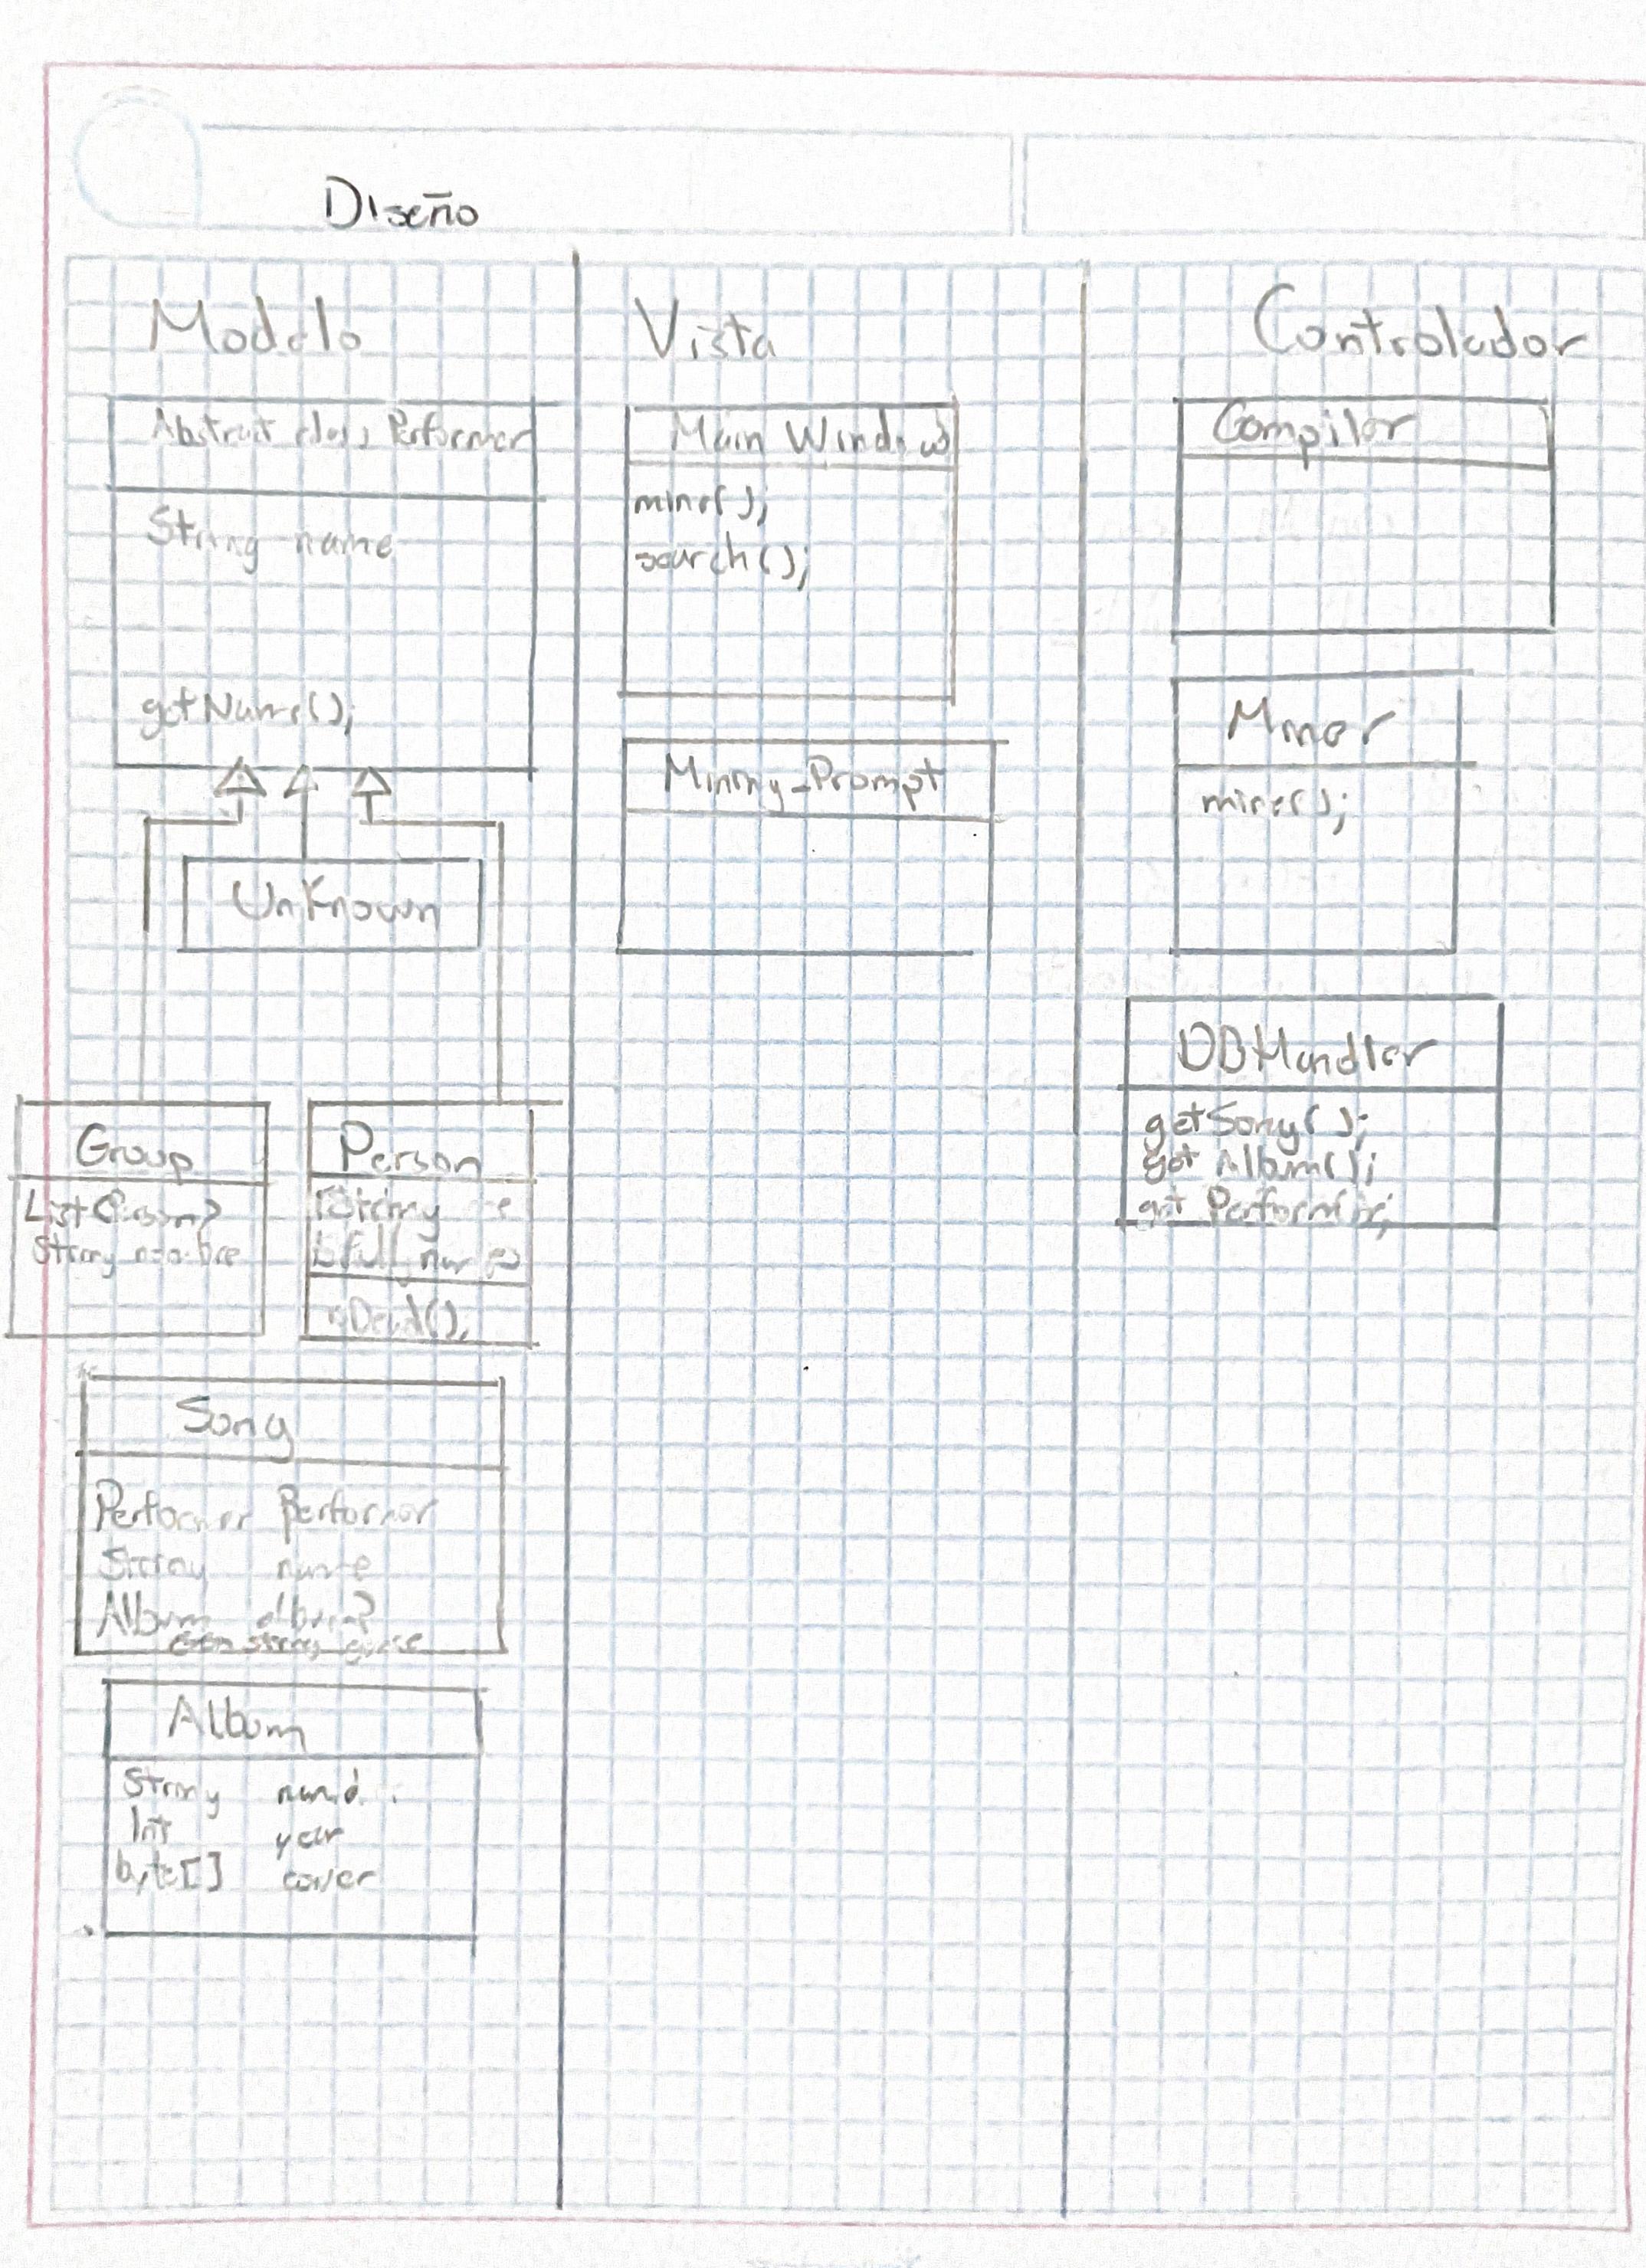 Diseño
Modelo
Abstract class Performer
String name
getName();
Unknown
Group
List<Person>
String nombre
Person
String
full
isDead();
Song
Performer Performer
String name
Album album?
String
Album
String
Int year
byte[] cover
Vista
Main Window
mine();
search();
Mining_Prompt
Controlador
Compiler
Miner
mine();
DBHandler
getSong();
get Album();
get Performer